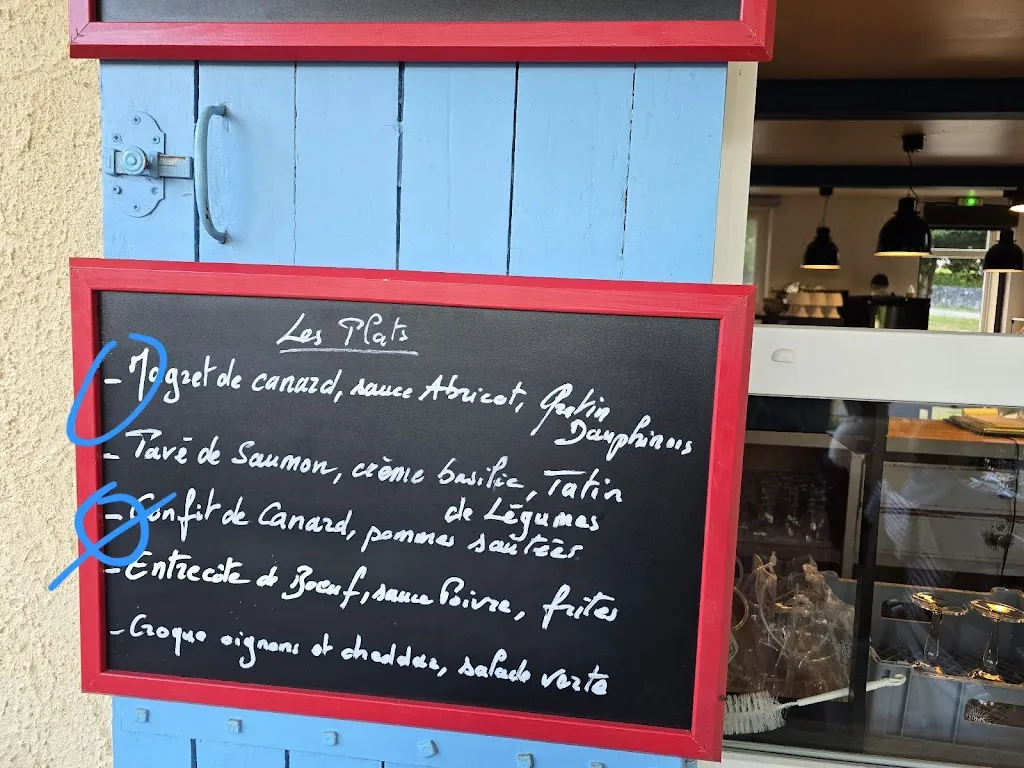 Les Plats
- Magret de canard, sauce Abricot, Gratin
Dauphinois
- Pavé de Saumon, crème basilic, Tatin
de Légumes
- Confit de Canard, pommes sautées
- Entrecôte de Boeuf, sauce Poivre, frites
- Croque oignons et cheddar, salade verte